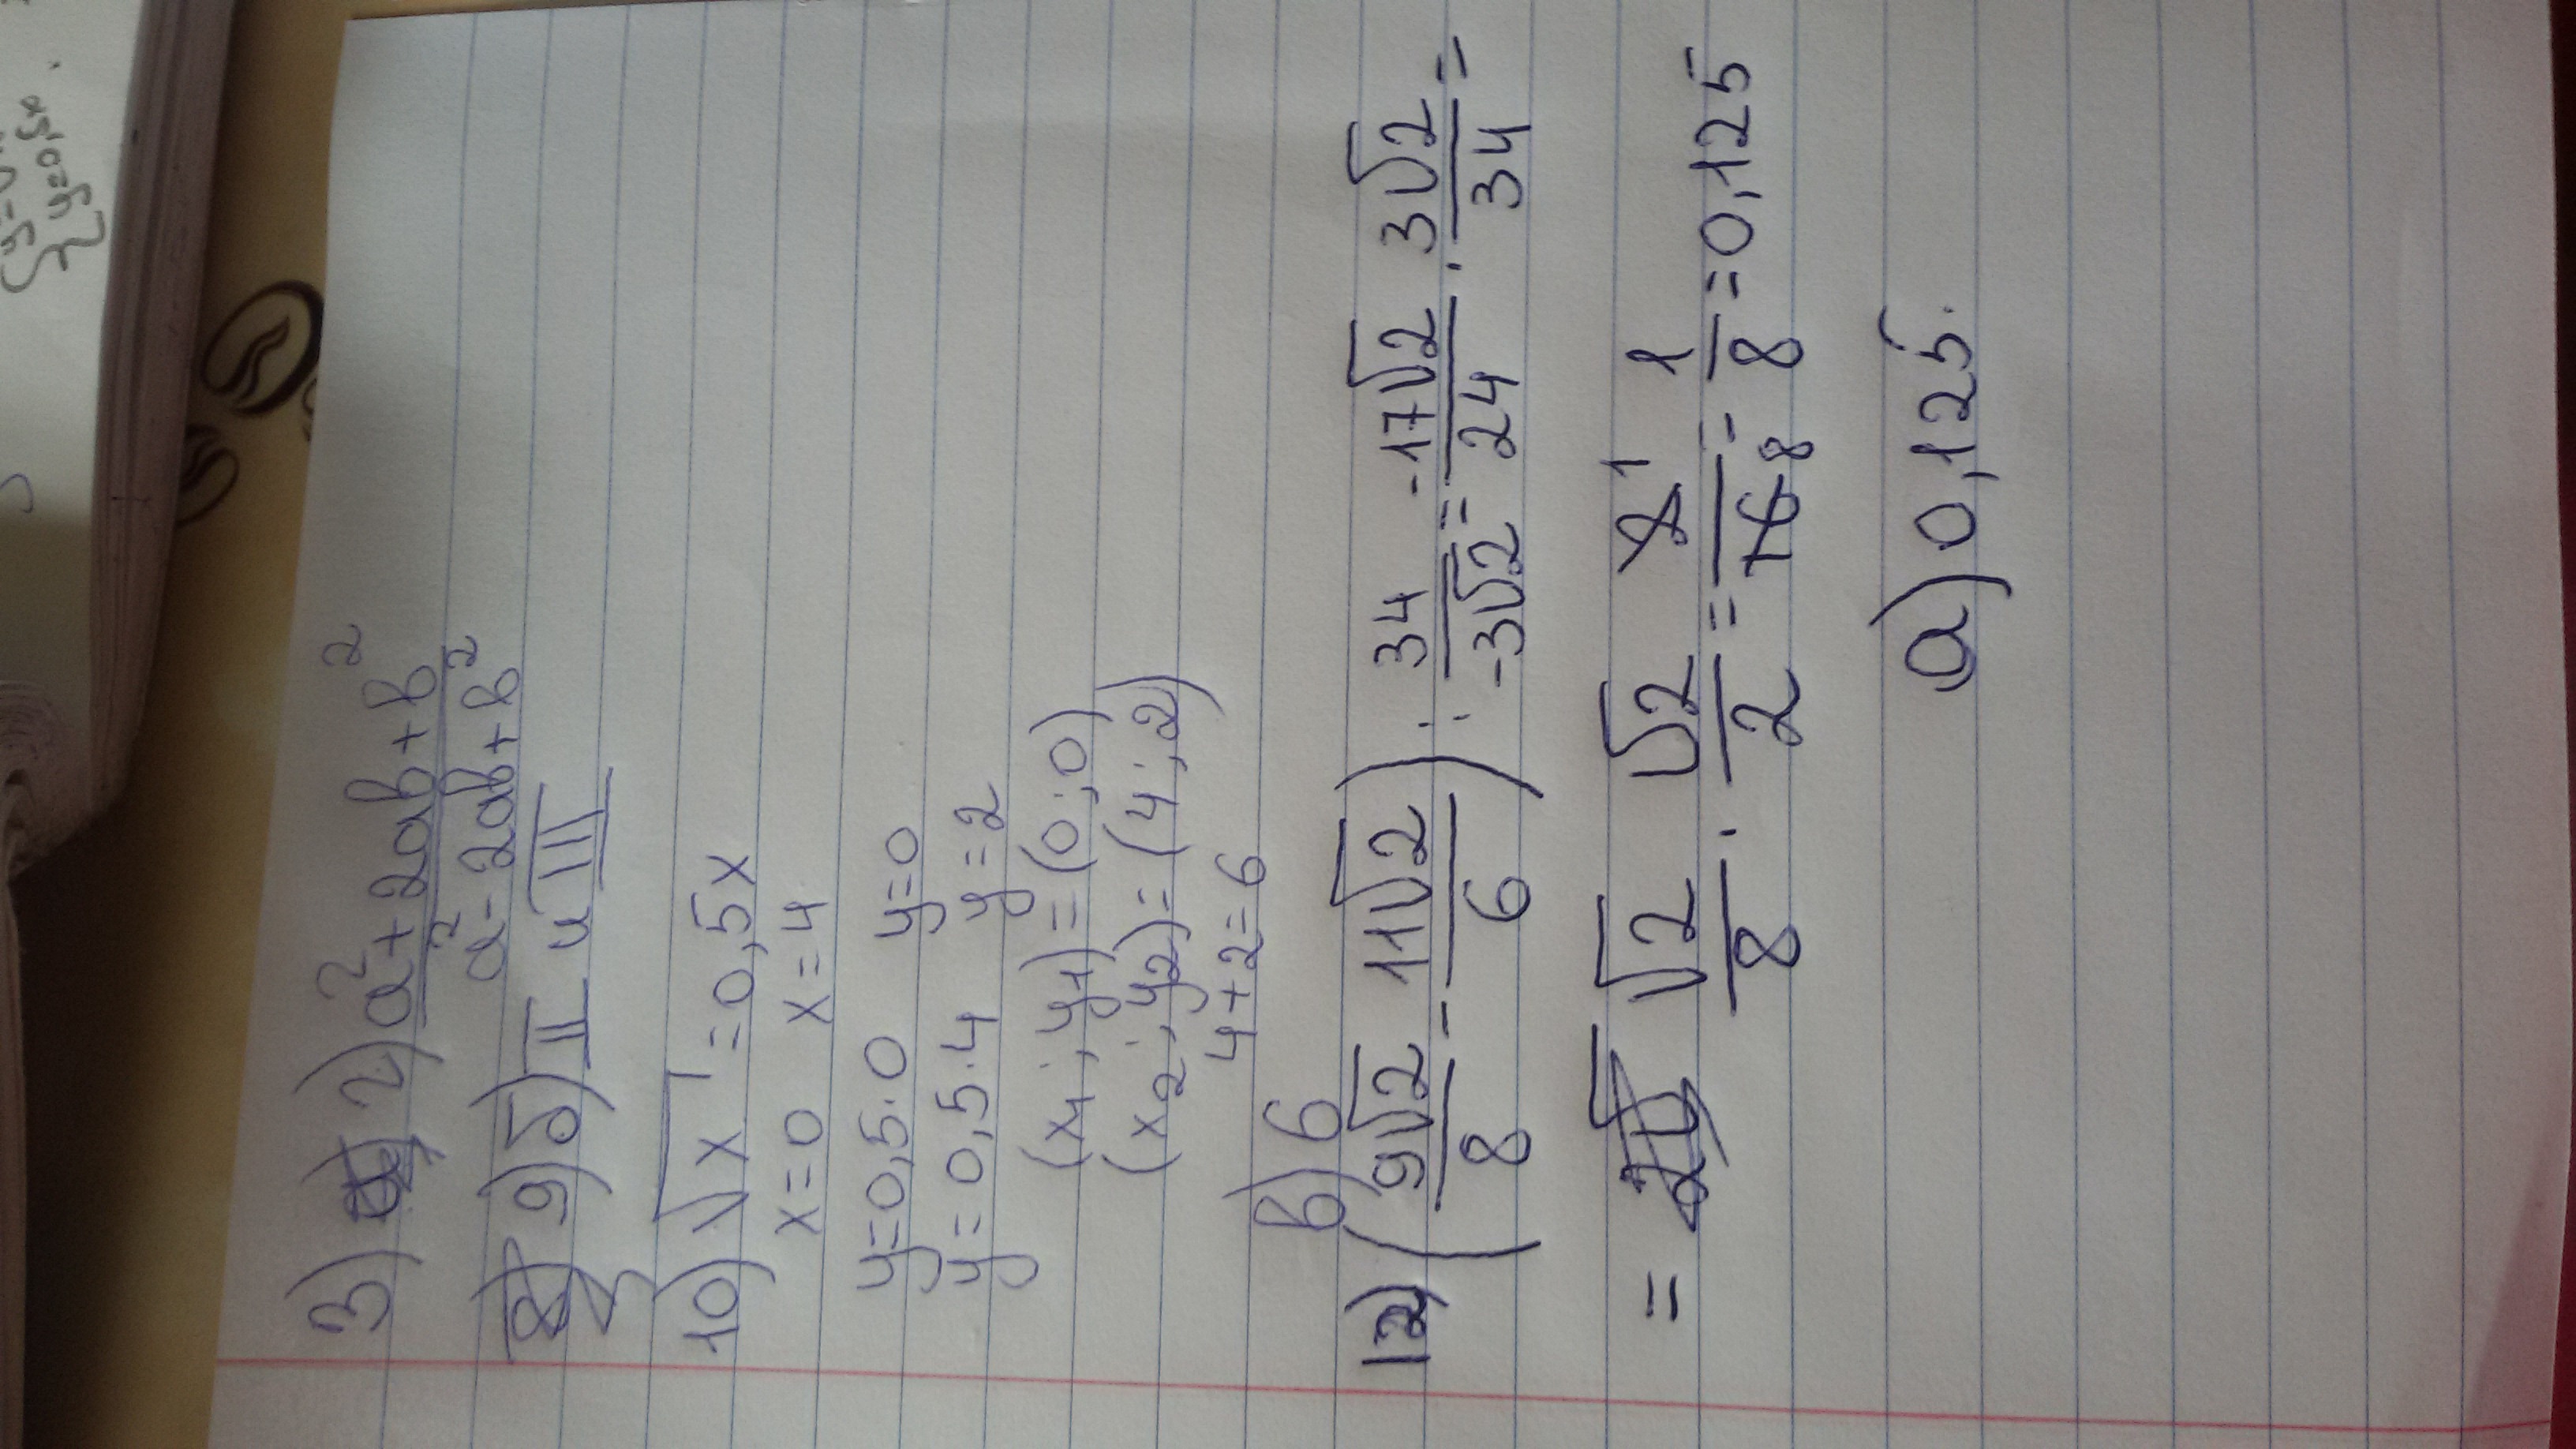 3) г) a²+2ab+b² / a²-2ab+b²
9) б) II и III
10) √x = 0,5x
x=0 x=4
y=0,5·0 y=0
y=0,5·4 y=2
(x₁; y₁)=(0;0)
(x₂; y₂)=(4;2)
4+2=6
в) 6
12) (9√2/8 - 11√2/6) : 34/-3√2 = -17√2/24 · 3√2/34 =
= √2/8 · √2/2 = 2/16 = 1/8 = 0,125
а) 0,125.
y=0,5x